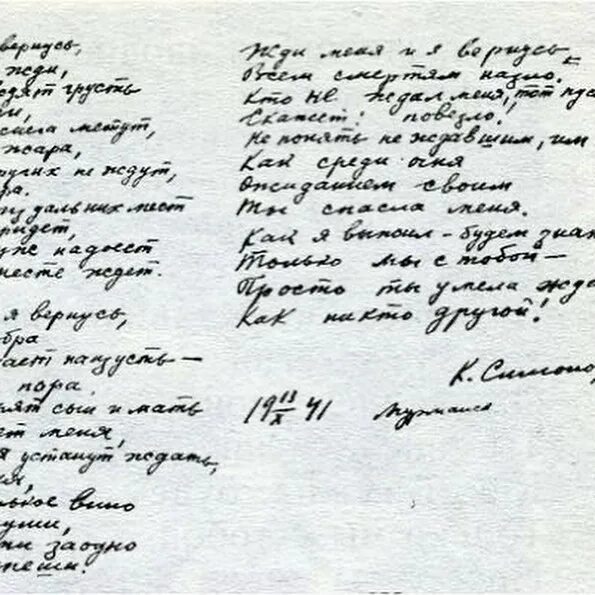 вернусь,
жди,
дят грусть
и,
снега метут,
жара,
других не ждут,
ра.
из дальних мест
ридет,
уже надоест
месте ждет.
я вернусь,
бра
ает наизусть —
пора.
рят сын и мать
ет меня,
я устанут ждать,
ня,
рькое вино
уши,
ми заодно
пеши.
Жди меня и я вернусь
Всем смертям назло.
Кто не ждал меня, тот пус
Скажет: повезло!
Не понять не ждавшим, им
Как среди огня
Ожиданием своим
Ты спасла меня.
Как я выжил – будем знат
Только мы с тобой —
Просто ты умела жда
Как никто другой!
К. Симоно
19 13/X 41 Мурманск